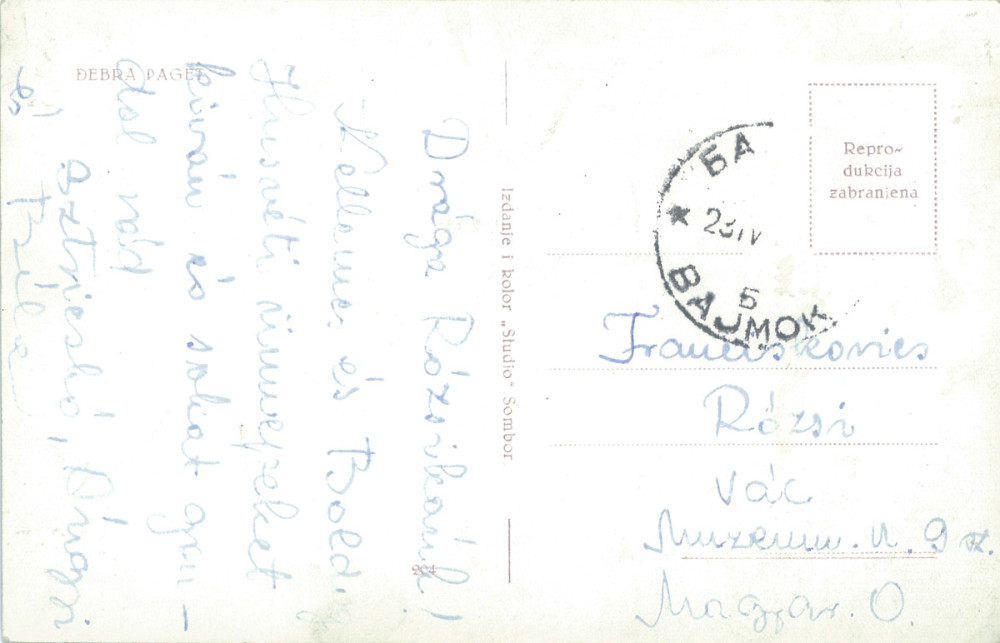 DEBRA PAGET
Drága Rózsikánk!
Kellemes és Boldog
Husvéti ünnepeket
kiván és sokat gon-
dol rád
és
Izdanje i kolor „Studio“ Sombor
Repro-
dukcija
zabranjena
БА
* 23 IV
5
BAJMOK
Franciskovics
Rózsi
Vác
Muzeum. u. 9 sz.
Magyar. O.